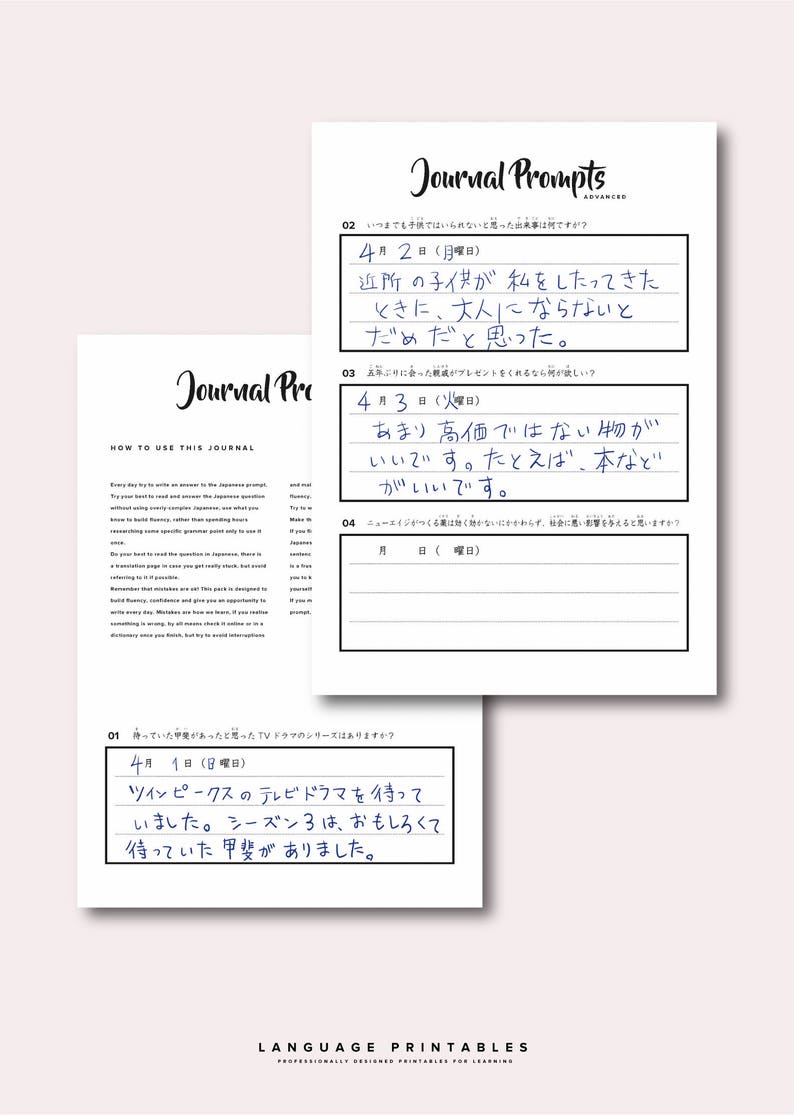 Journal Prompts
ADVANCED
02 いつまでも子供ではいられないと思った出来事は何ですか？
4月 2日（月曜日）
近所の子供が 私をしたってきた
ときに、大人にならないと
だめだと思った。
03 五年ぶりに会った親戚がプレゼントをくれるなら何が欲しい？
4月 3日（火曜日）
あまり高価ではない物が
いいです。たとえば、本など
がいいです。
04 ニューエイジがつくる薬は効く効かないにかかわらず、社会に悪い影響を与えると思いますか？
月 日（ 曜日）
Journal Pro
HOW TO USE THIS JOURNAL
Every day try to write an answer to the Japanese prompt.
Try your best to read and answer the Japanese question
without using overly-complex Japanese, use what you
know to build fluency, rather than spending hours
researching some specific grammar point only to use it
once.
Do your best to read the question in Japanese, there is
a translation page in case you get really stuck, but avoid
referring to it if possible.
Remember that mistakes are ok! This pack is designed to
build fluency, confidence and give you an opportunity to
write every day. Mistakes are how we learn, if you realise
something is wrong, by all means check it online or in a
dictionary once you finish, but try to avoid interruptions
and mal
fluency.
Try to w
Make th
If you fi
Japanes
sentenc
is a frus
you to k
yourself
If you m
prompt,
01 待っていた甲斐があったと思った TV ドラマのシリーズはありますか？
4月 1日（日曜日）
ツインピークスのテレビドラマを待って
いました。シーズン3は、おもしろくて
待っていた甲斐がありました。
LANGUAGE PRINTABLES
PROFESSIONALLY DESIGNED PRINTABLES FOR LEARNING